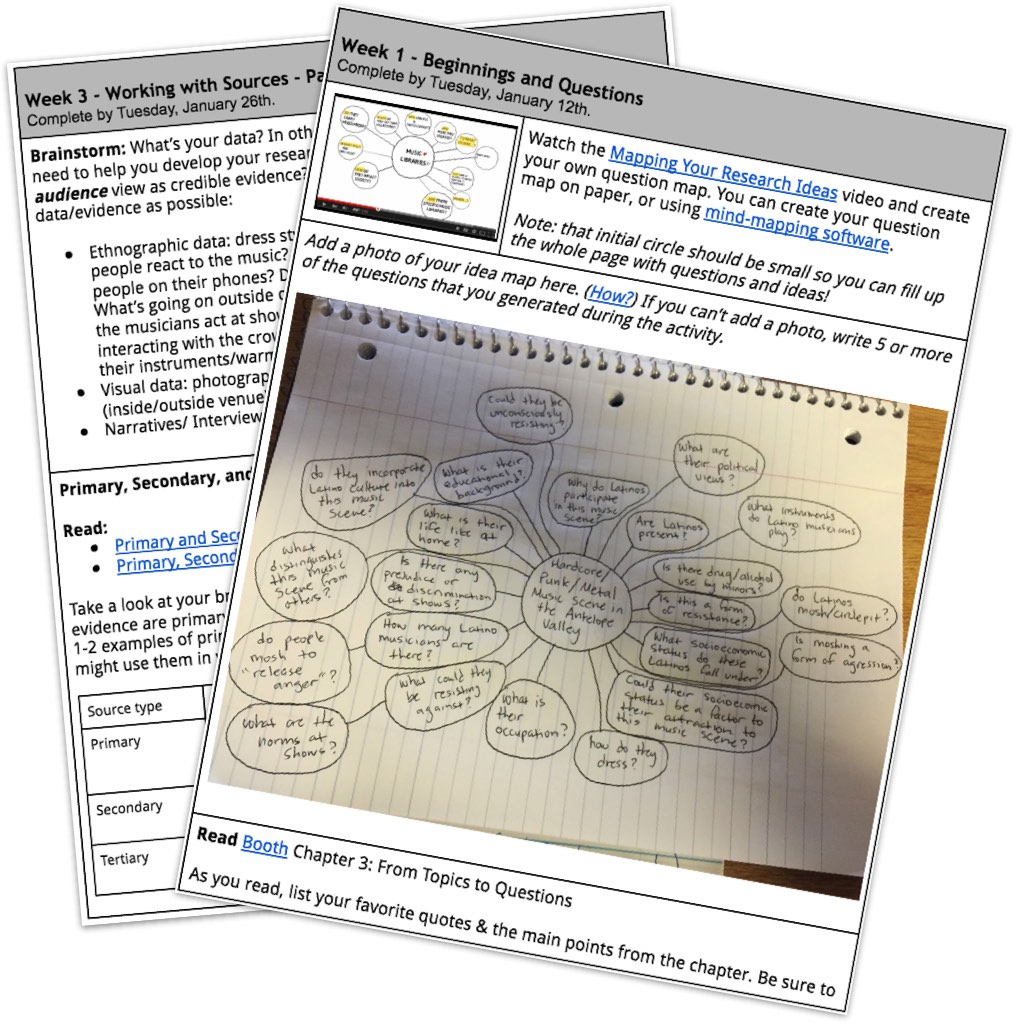 Week 3 - Working with Sources - Pa
Complete by Tuesday, January 26th.
Brainstorm: What's your data? In oth
need to help you develop your resear
audience view as credible evidence?
data/evidence as possible:
Ethnographic data: dress st
people react to the music?
people on their phones? D
What's going on outside o
the musicians act at show
interacting with the crow
their instruments/warm
Visual data: photograp
(inside/outside venue
Narratives/ Interview
Primary, Secondary, and
Read:
Primary and Seco
Primary, Second
Take a look at your br
evidence are primary
1-2 examples of prim
might use them in
Source type
Primary
Secondary
Tertiary
Week 1 - Beginnings and Questions
Complete by Tuesday, January 12th.
MUSIC +
LIBRARIES
Watch the Mapping Your Research Ideas video and create
your own question map. You can create your question
map on paper, or using mind-mapping software.
Note: that initial circle should be small so you can fill up
the whole page with questions and ideas!
Add a photo of your idea map here. (How?) If you can't add a photo, write 5 or more
of the questions that you generated during the activity.
Could they be
unconsciously
resisting?
What are
their political
views?
do they incorporate
Latino culture into
this music
scene?
What is their
educational
background?
Why do Latinos
participate
in this music
scene?
What instruments
do Latino musicians
play?
What is their
life like at
home?
Are Latinos
present?
What
distinguishes
this music
scene from
others?
Is there any
prejudice or
discrimination
at shows?
Hardcore/
Punk/Metal
Music Scene in
the Antelope
Valley
Is there drug/alcohol
use by minors?
Is this a form
of resistance?
do Latinos
mosh/circlepit?
How many Latino
musicians are
there?
What socioeconomic
status do these
Latinos fall under?
Is moshing a
form of agression?
do people
mosh to
"release
anger"?
What could they
be resisting
against?
What is
their
occupation?
Could their socioeconomic
status be a factor to
their attraction to
this music scene?
What are the
norms at
shows?
how do they
dress?
Read Booth Chapter 3: From Topics to Questions
As you read, list your favorite quotes & the main points from the chapter. Be sure to